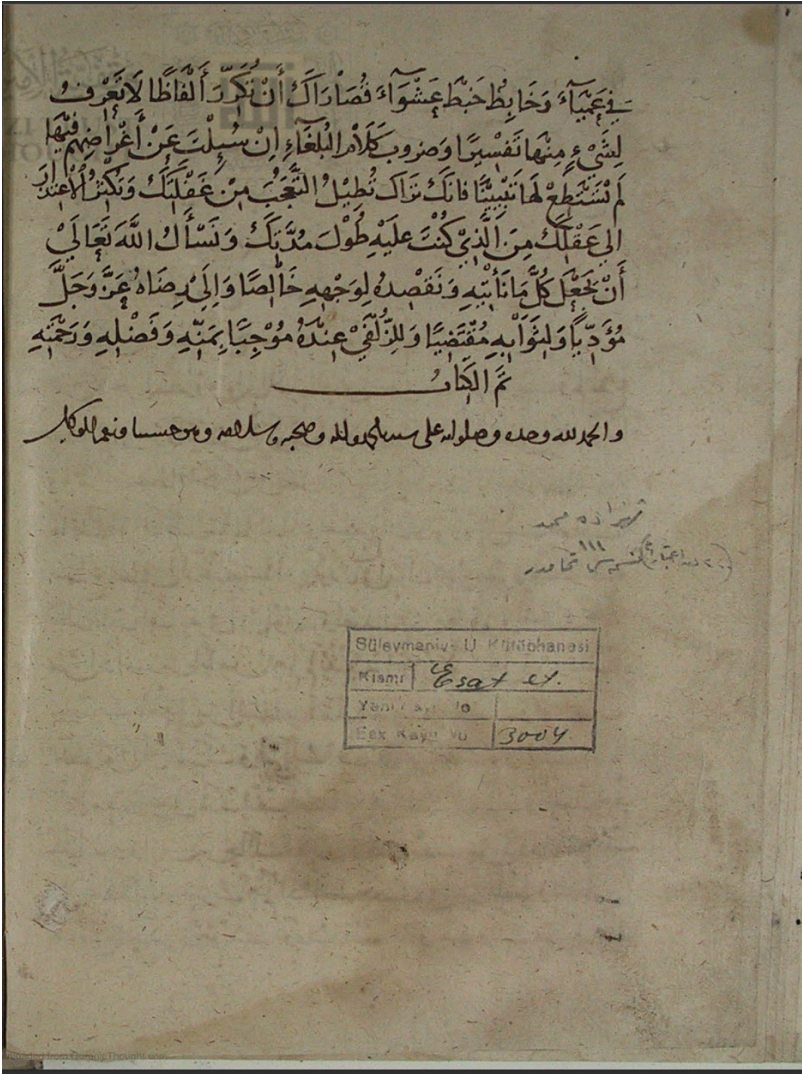 فِي عَمْيَآءَ وَخَابِطٌ خَبْطَ عَشْوَآءَ قُصَارَاكَ أَنْ تُكَرِّرَ أَلْفَاظًا لَا تَعْرِفُ
لِشَيْءٍ مِنْهَا تَفْسِيرًا وَضروب كَلَامِ البُلَغَآءِ اِنْ سُئِلْتَ عَنْ أَغْرَاضِهِمْ فِيْهَا
لَمْ تَسْتَطِعْ لَهَا تَبْيِيْنًا فانَكَ تَرَاكَ تُطِيْلُ التَّعَجُّبَ مِنْ غَفْلَتِكَ وَتُكْثِرُ الْاِعْتِذَارَ
الى عَقْلِكَ مِنَ الَّذِيْ كُنْتَ عليَهِ طُوْلَ مُدَّتِكَ وَنَسْأَلُ اللَّهَ تَعَالَيْ
أَنْ يَجْعَلَ كُلَّ مَا نَأتِيْهِ وَنَقْصِدُهُ لِوَجْهِهِ خَالِصًا وَاِلَىْ رِضَاهُ عَزَّ وَجَلَّ
مُؤَدِّيًا وَلِثَوَابِهِ مُقْتَضِيًا وَلِلزُّلْفَيْ عِنْدَهُ مُوْجِبًا بِمَنِّهِ وَفَضْلِهِ وَرَحْمَتِهِ
تَمَّ الكِتَابُ
والحمد لله وحده وصلواته على سيدنا محمد واله وصحبه وسلامه وهو حسبنا ونعم الوكيل
زاده محمد
١١١
Süleymaniye U Kütüphanesi
Kısmı Esat ef.
Yeni Kayıt No
Esk Kayıt No 3004